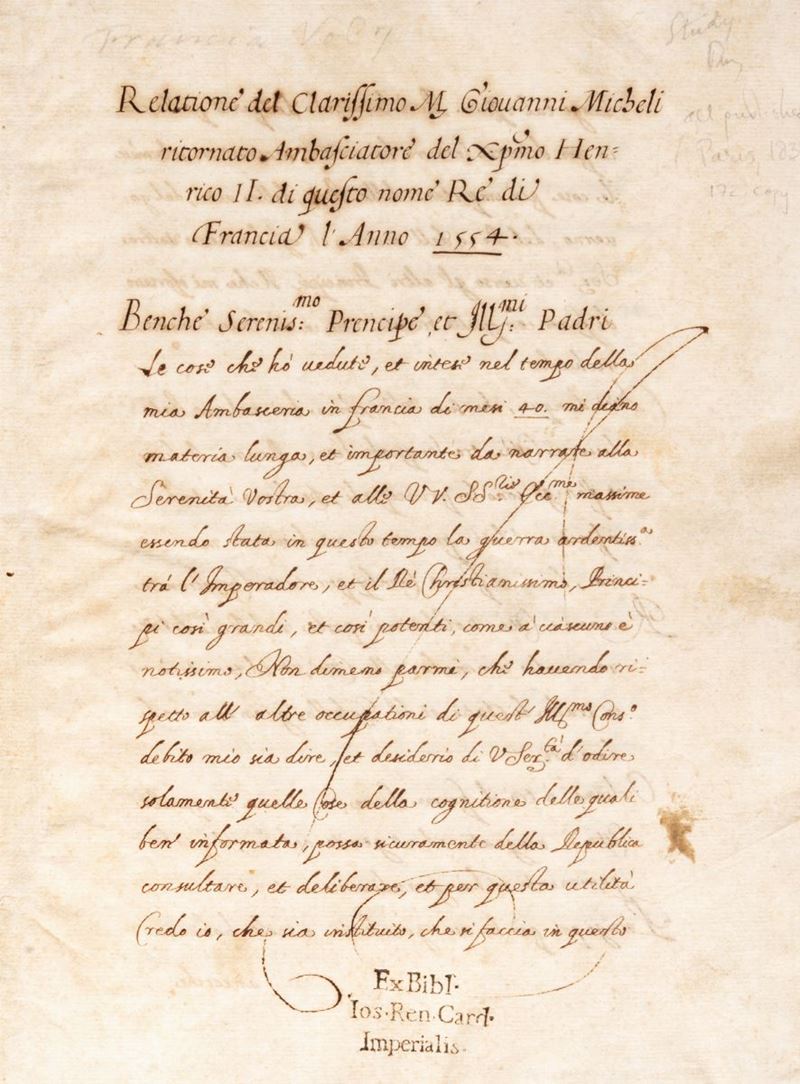 Francia Vol 7
Study
Relatione del Clarissimo M. Giouanni Micheli
ritornato Ambasciatore del Xp̃mo Hen=
rico II. di questo nome Re di
Francia l'Anno 1554.
Benche Serenis:mo Prencipe, et Ill:mi Padri
Le cose che hò uedute, et intese nel tempo della
mia Ambasceria in francia di mesi 40. mi diano
materia lunga, et importante da narrare alla
Serenità Vostra, et alle V V. SS.rie Ecc.me massime
essendo stata in questo tempo la guerra ardentiss.a
trà l'Imperadore, et il Rè Christianissimo, Princi=
pi così grandi, et così potenti, come à ciascuno è
notissimo, Non dimeno parmi, che hauendo ri=
spetto all' altre occupationi di quest' Ill.mo Cons.o
debito mio sia dire, et desiderio di V Ser.tà d'odire
solamente quelle cose della cognitione delle quali
ben' informata, possa sicuramente della Republica
consultare, et deliberare, et per questa utilità
Credo io, che sia instituito, che si faccia in questo
Ex Bibl.
Ios. Ren. Card.
Imperialis.